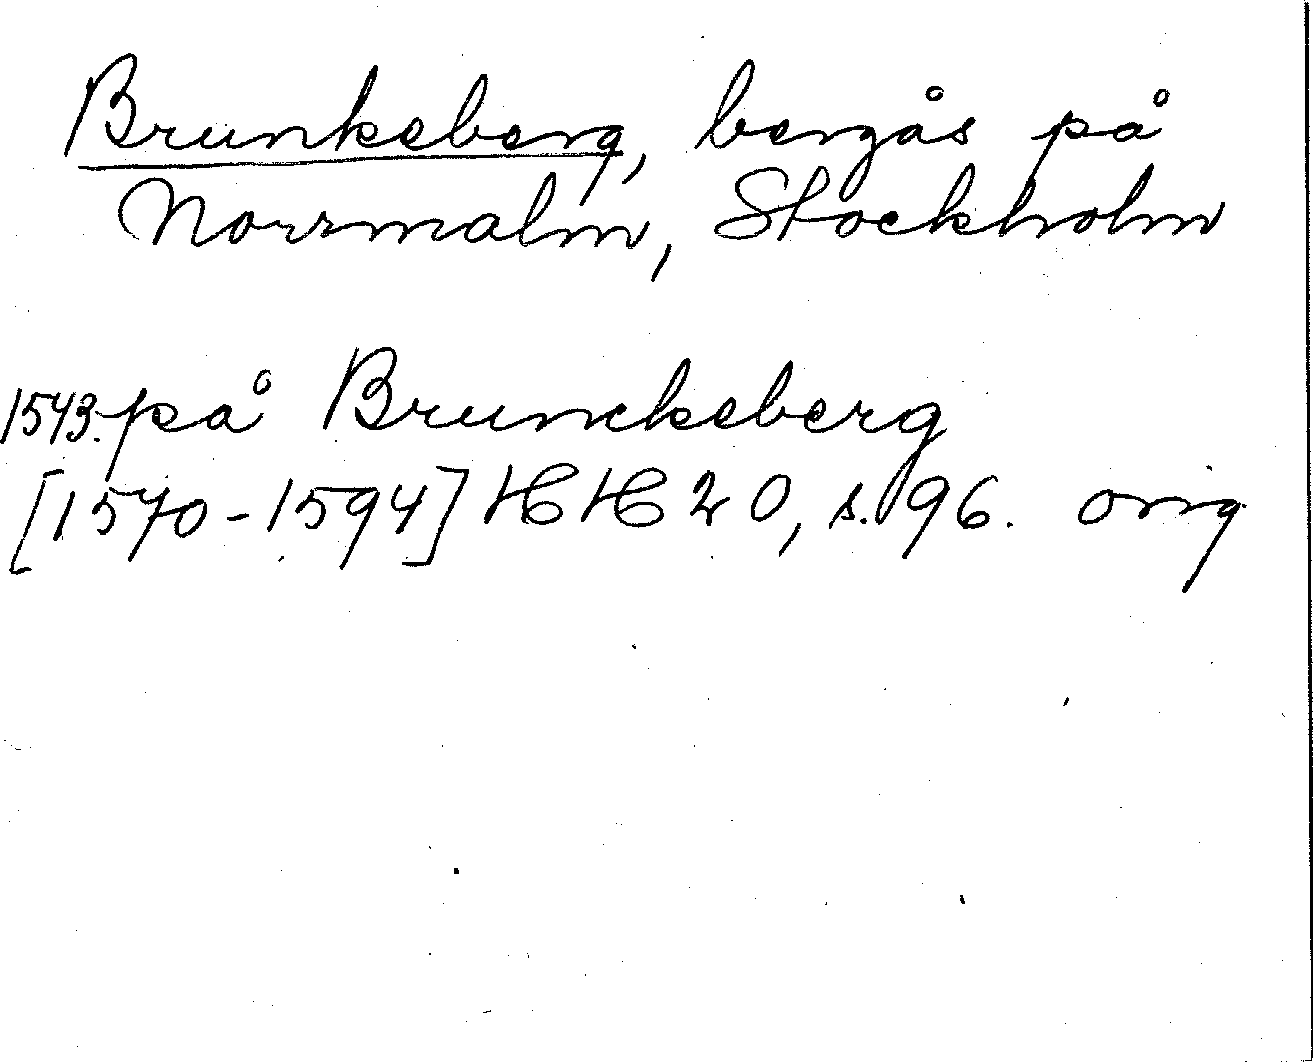 Brunkeberg, bergås på
Norrmalm, Stockholm
1543. på Brunckeberg
[1570-1594] HH 20, s. 96. orig